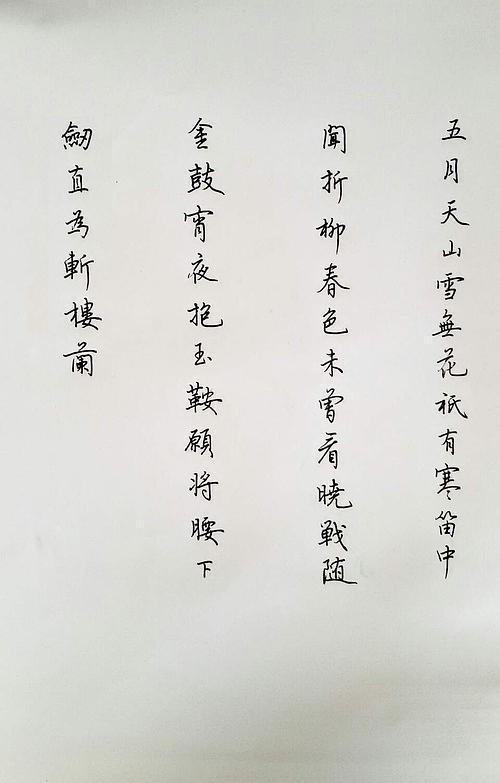 五月天山雪無花祇有寒笛中
聞折柳春色未曾看曉戰随
金鼓宵夜抱玉鞍願將腰下
劒直為斬樓蘭